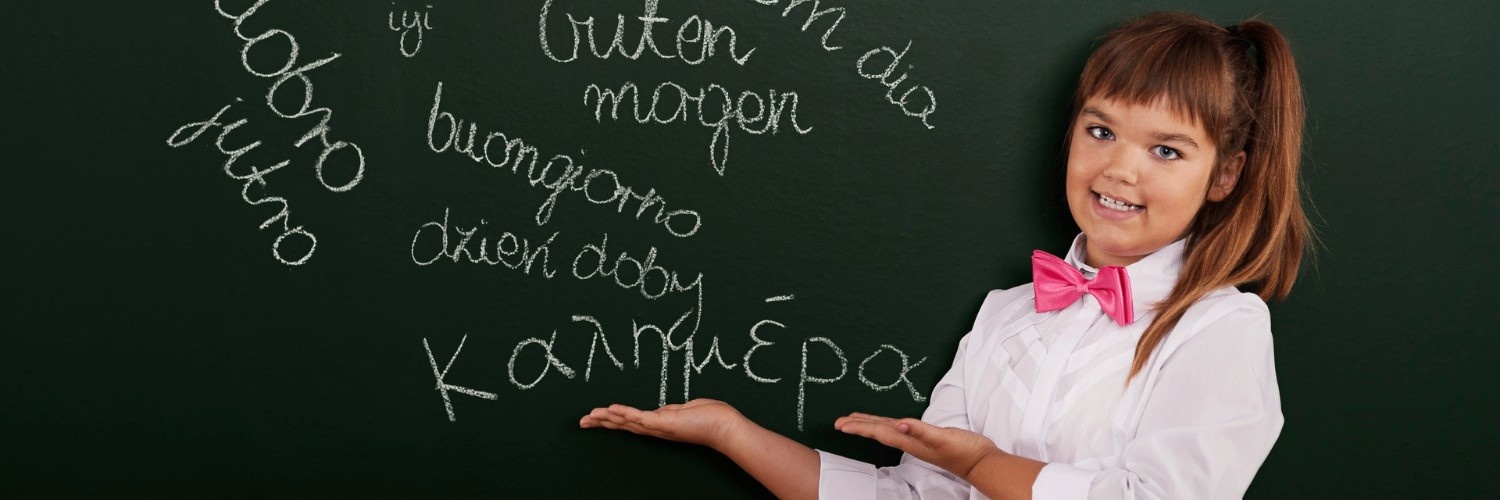 dobro
jutro
iyi
Guten
magen
m dia
buongiorno
dzień doby
καλημέρα